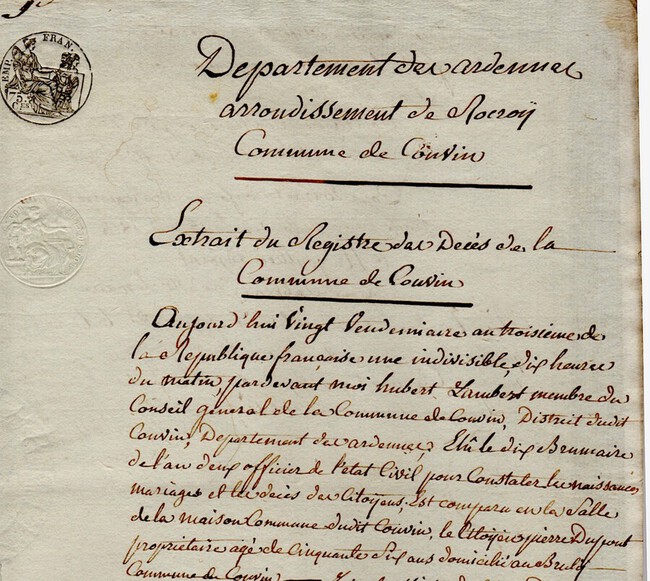 EMP. FRAN.
Departement des ardennes
arrondissement de Rocroÿ
Commune de Couvin
Extrait du Registre des Décès de la
Commune de Couvin
Aujourd'hui Vingt Vendemiaire an troisième de
la Republique française une indivisible, dix heures
du matin, pardevant moi hubert Lambert membre du
Conseil général de la Commune de Couvin, District dudit
Couvin, Departement des ardennes, Elû le dix Brumaire
de l'an deux officier de l'etat Civil pour Constater les naissances
mariages et les décès des Citoyens, Est comparu en la Salle
de la maison Commune dudit Couvin, le Citoyen pierre Dupont
propriétaire agé de Cinquante Six ans domicilié au Brulÿ
Commune de Couvin